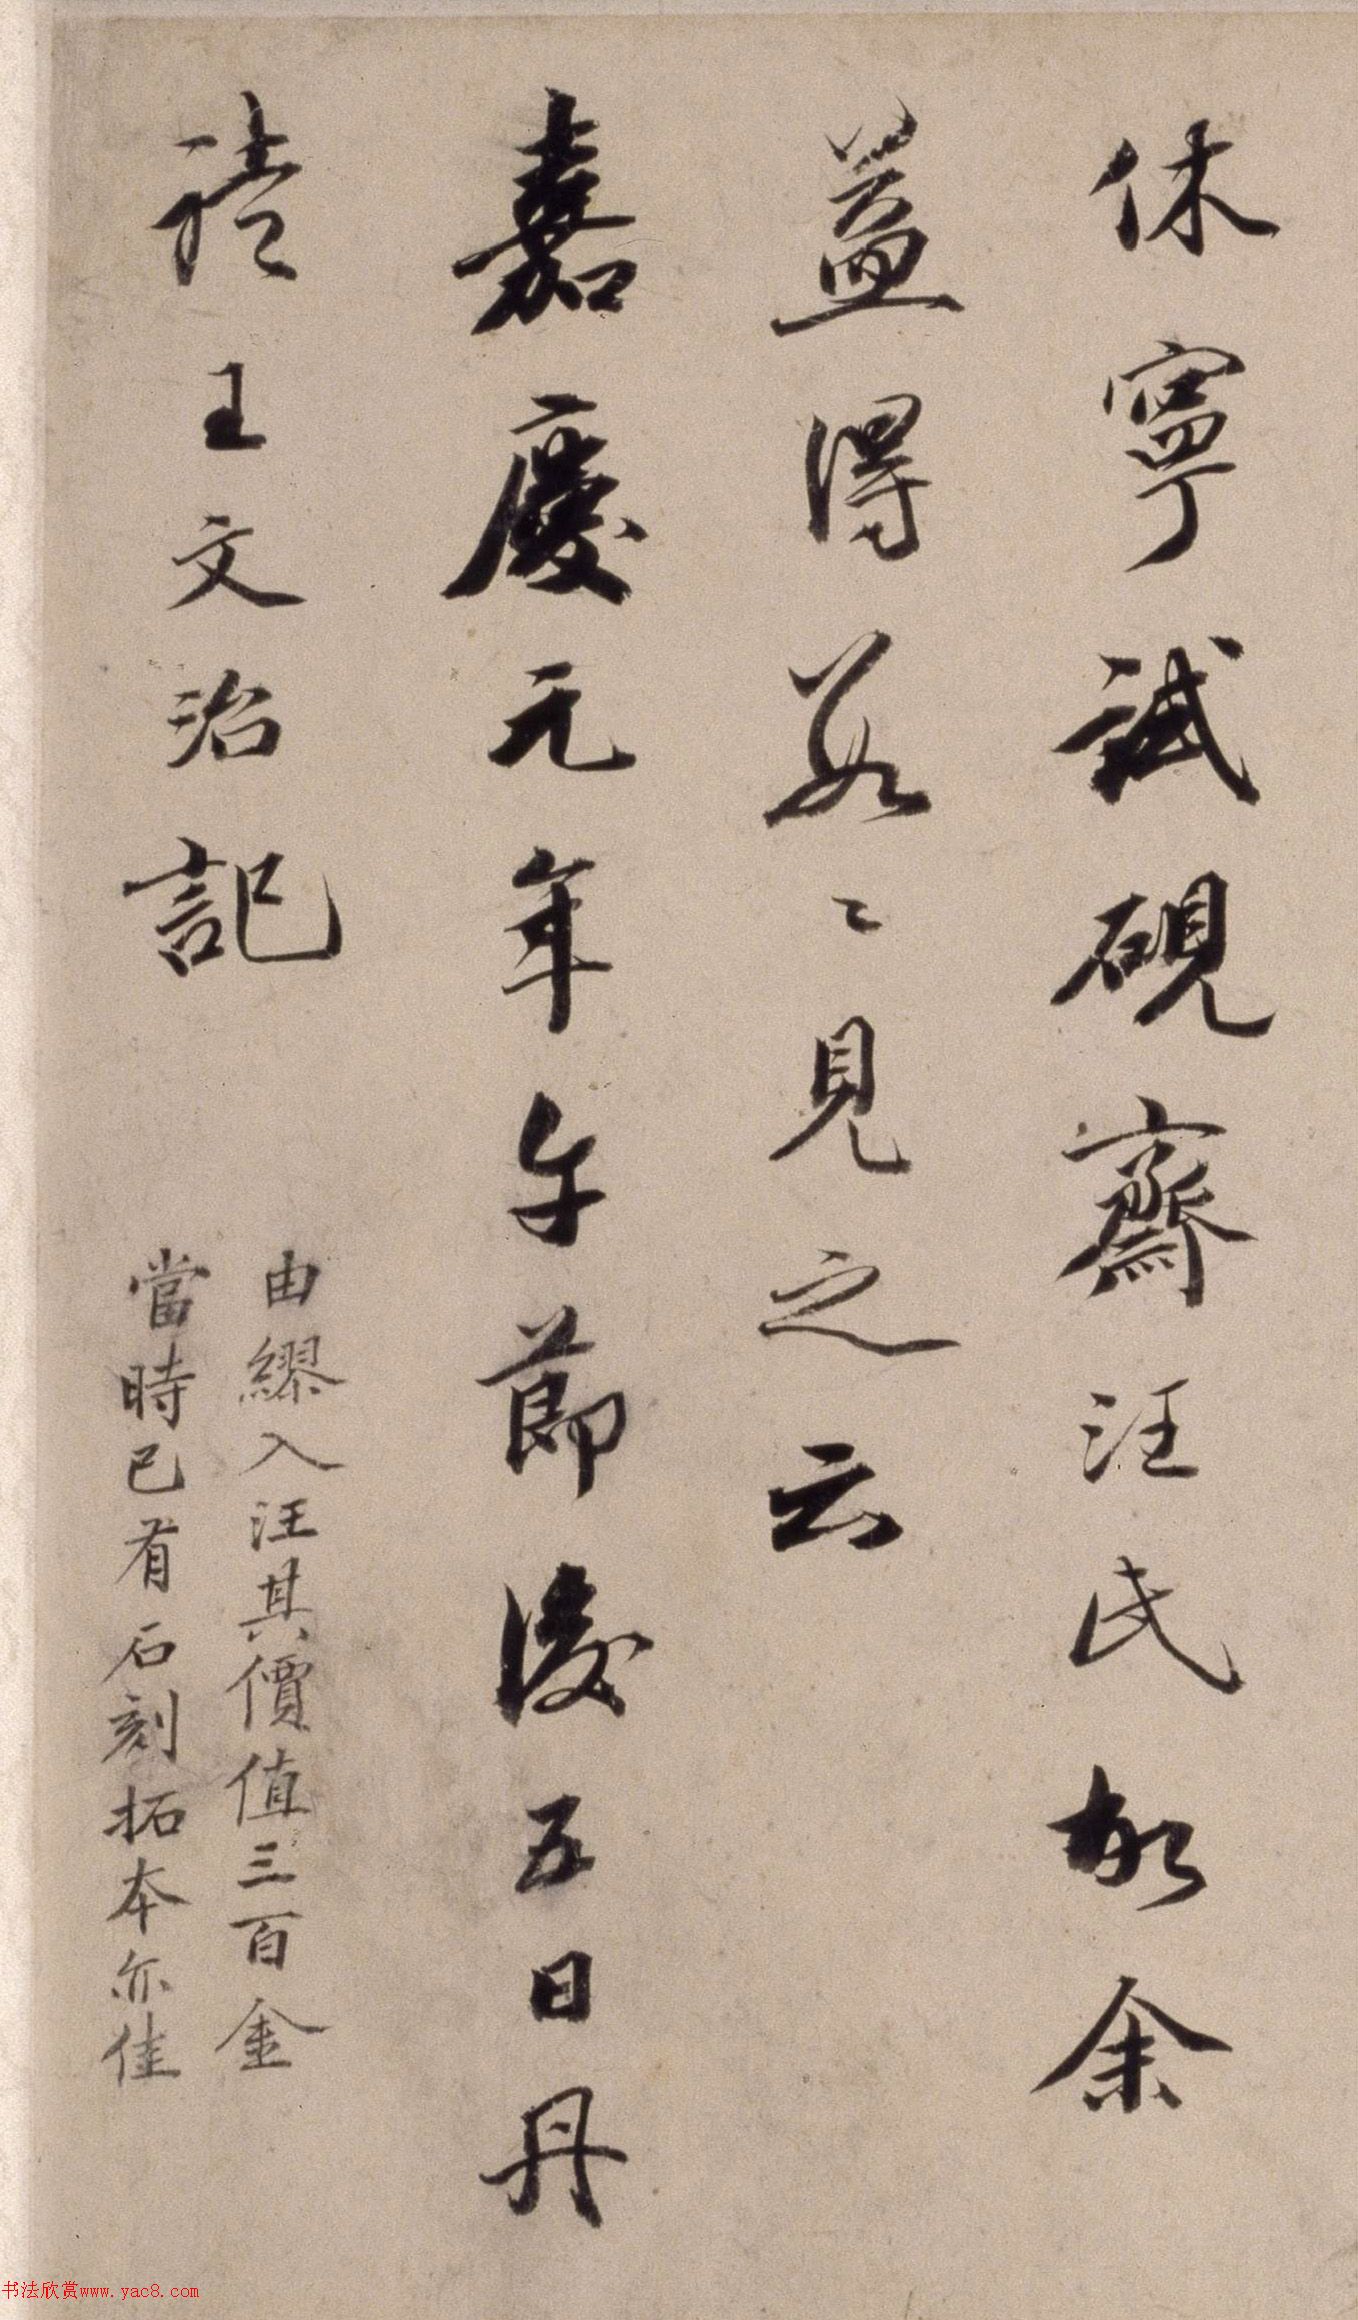 休寧試硯齋汪氏故余
益得數〻見之云
嘉慶元年午節後五日丹
徒王文治記
由繆入汪其價值三百金
當時已有石刻拓本亦佳
书法欣赏www.yac8.com